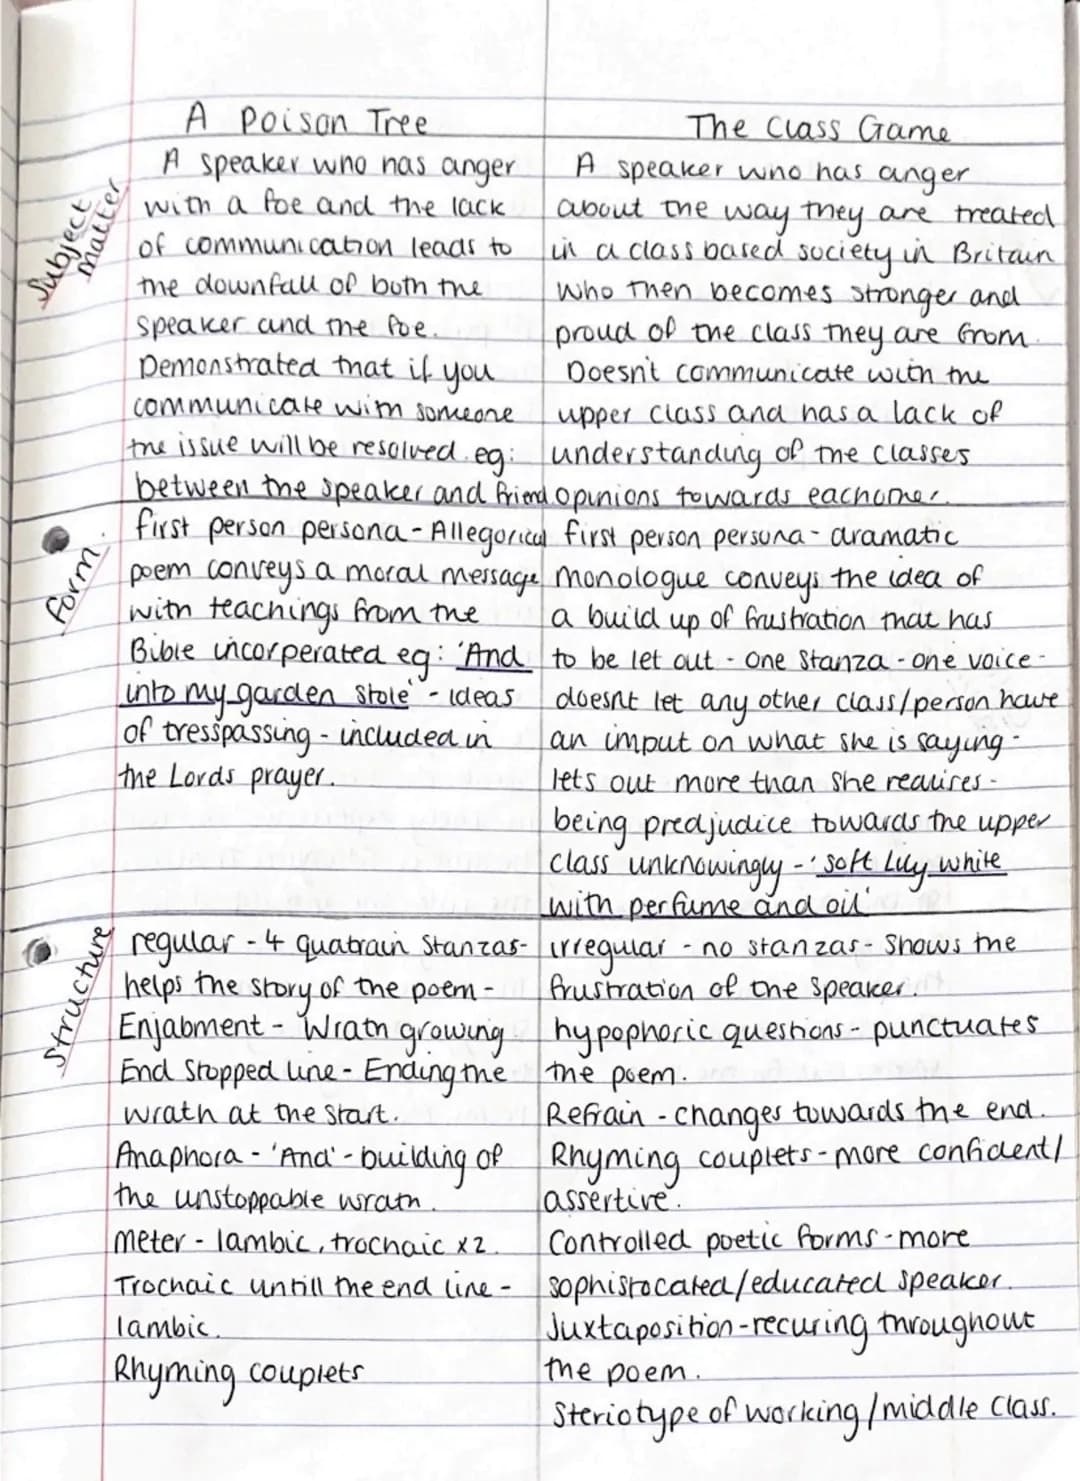 A Poison Tree
A speaker who has anger
with a foe and the lack
of communication leads to
the downfall of both the
speaker and the foe.
Demonstrated that if you
communicate with someone
the issue will be resolved. eg:
between the speaker and friend
The Class Game
A speaker who has anger
about the way they are treated
in a class based society in Britain
who then becomes stronger and
proud of the class they are from.
Doesn't communicate with the
upper class and has a lack of
understanding of the classes
opinions towards eachother.
Subject
matter
first person persona - Allegorical
poem conveys a moral message
with teachings from the
Bible incorperated eg: 'And
into my garden stole' - ideas
of tresspassing - included in
the Lords prayer.
first person persona - dramatic
monologue conveys the idea of
a build up of frustration that has
to be let out - one stanza - one voice -
doesnt let any other class/person have
an imput on what she is saying -
lets out more than she realises -
being predjudice towards the upper
class unknowingly - 'soft lily white
with perfume and oil'
form.
regular - 4 quatrain stanzas-
helps the story of the poem -
Enjabment - Wrath growing
End Stopped line - Ending the
wrath at the start.
Anaphora - 'And' - building of
the unstoppable wrath.
meter - iambic, trochaic x2.
Trochaic untill the end line -
iambic.
Rhyming couplets
irregular - no stanzas - shows the
frustration of the speaker.
hypophoric questions - punctuates
the poem.
Refrain - changes towards the end.
Rhyming couplets - more confident/
assertive.
Controlled poetic forms - more
sophistocated/educated speaker.
Juxtaposition - recuring throughout
the poem.
Steriotype of working/middle class.
Structure